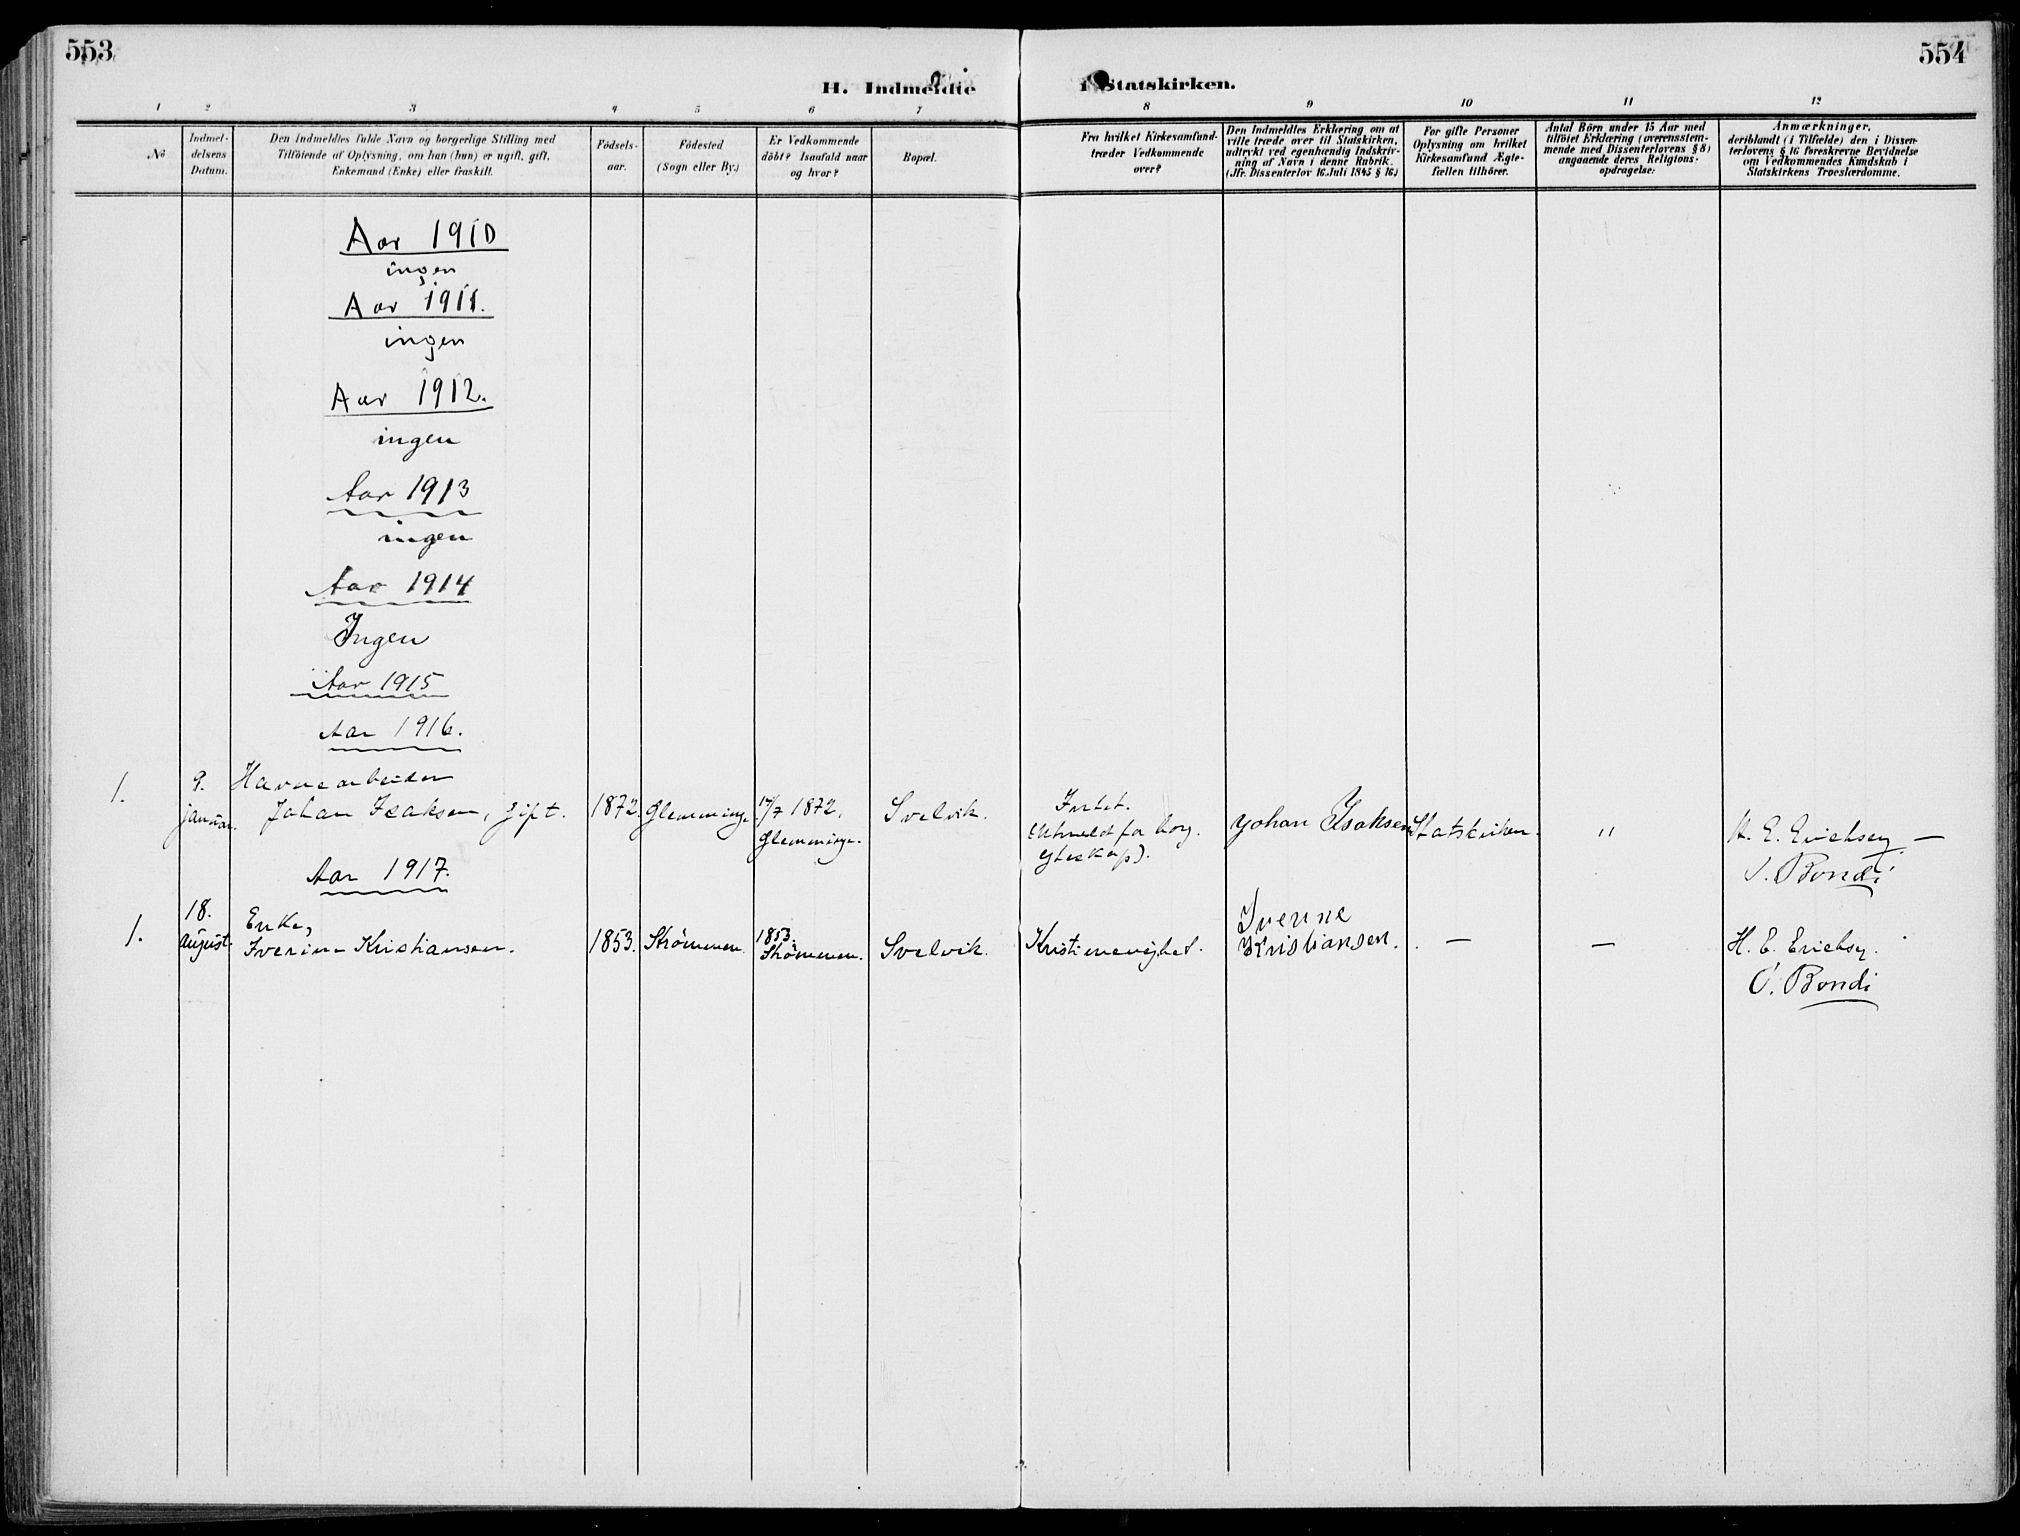 553
554
H. Indmeldte i Statskirken.
1 2 3 4 5 6 7 8 9 10 11 12
No
Indmel-
delsens
Datum.
Den Indmeldtes fulde Navn og borgerlige Stilling med
Tilföiende af Oplysning, om han (hun) er ugift, gift,
Enkemand (Enke) eller fraskilt.
Födsels-
aar.
Födested
(Sogn eller By.)
Er Vedkommende
döbt? Isaafald naar
og hvor?
Bopæl.
Fra hvilket Kirkesamfund
træder Vedkommende
over?
Den Indmeldtes Erklæring om at
ville træde over til Statskirken,
udtrykt ved egenhændig Indskriv-
ning af Navn i denne Rubrik.
(Jfr. Dissenterlov 16. Juli 1845 § 16.)
For gifte Personer
Oplysning om hvilket
Kirkesamfund Ægte-
fællen tilhörer.
Antal Börn under 15 Aar med
tilföiet Erklæring (overensstem-
mende med Dissenterlovens § 8)
angaaende deres Religions-
opdragelse:
Anmærkninger,
deriblandt (i Tilfælde) den i Dissen-
terlovens § 16 foreskrevne Bevidnelse
om Vedkommendes Kundskab i
Statskirkens Troeslærdomme.
Aar 1910
ingen
Aar 1911.
ingen
Aar 1912.
ingen
Aar 1913
ingen
Aar 1914
Ingen
Aar 1915
Aar 1916.
1.
9.
januar.
Havnearbeider
Johan Isaksen, gift.
1872.
Glemminge
17/7 1872.
Glemminge.
Svelvik.
Intet.
(Utmeldt for borg.
Johan Isaksen
Statskirken.
"
H. E. Erichsen. —
O. Bondi
Aar 1917.
1.
18.
august.
Enke,
Iverine Kristiansen.
1853.
Strømmen.
1853.
Strømmen.
Svelvik.
Iverine
Kristiansen.
—
—
H. E. Erichsen.
O. Bondi